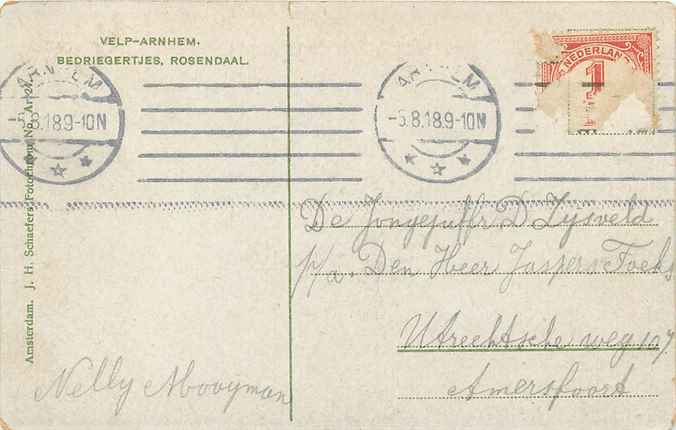 VELP-ARNHEM.
BEDRIEGERTJES, ROSENDAAL.
ARNHEM
-5.8.18.9-10N
ARNHEM
-5.8.18.9-10N
NEDERLAND
1
Amsterdam. J. H. Schaefers Fotochroom No. Ar
De Jongejuffr D. Zysveld
p/a. Den Heer Jaspers Foeks
Utrechtsche weg 107
Amersfoort
Nelly Mooyman